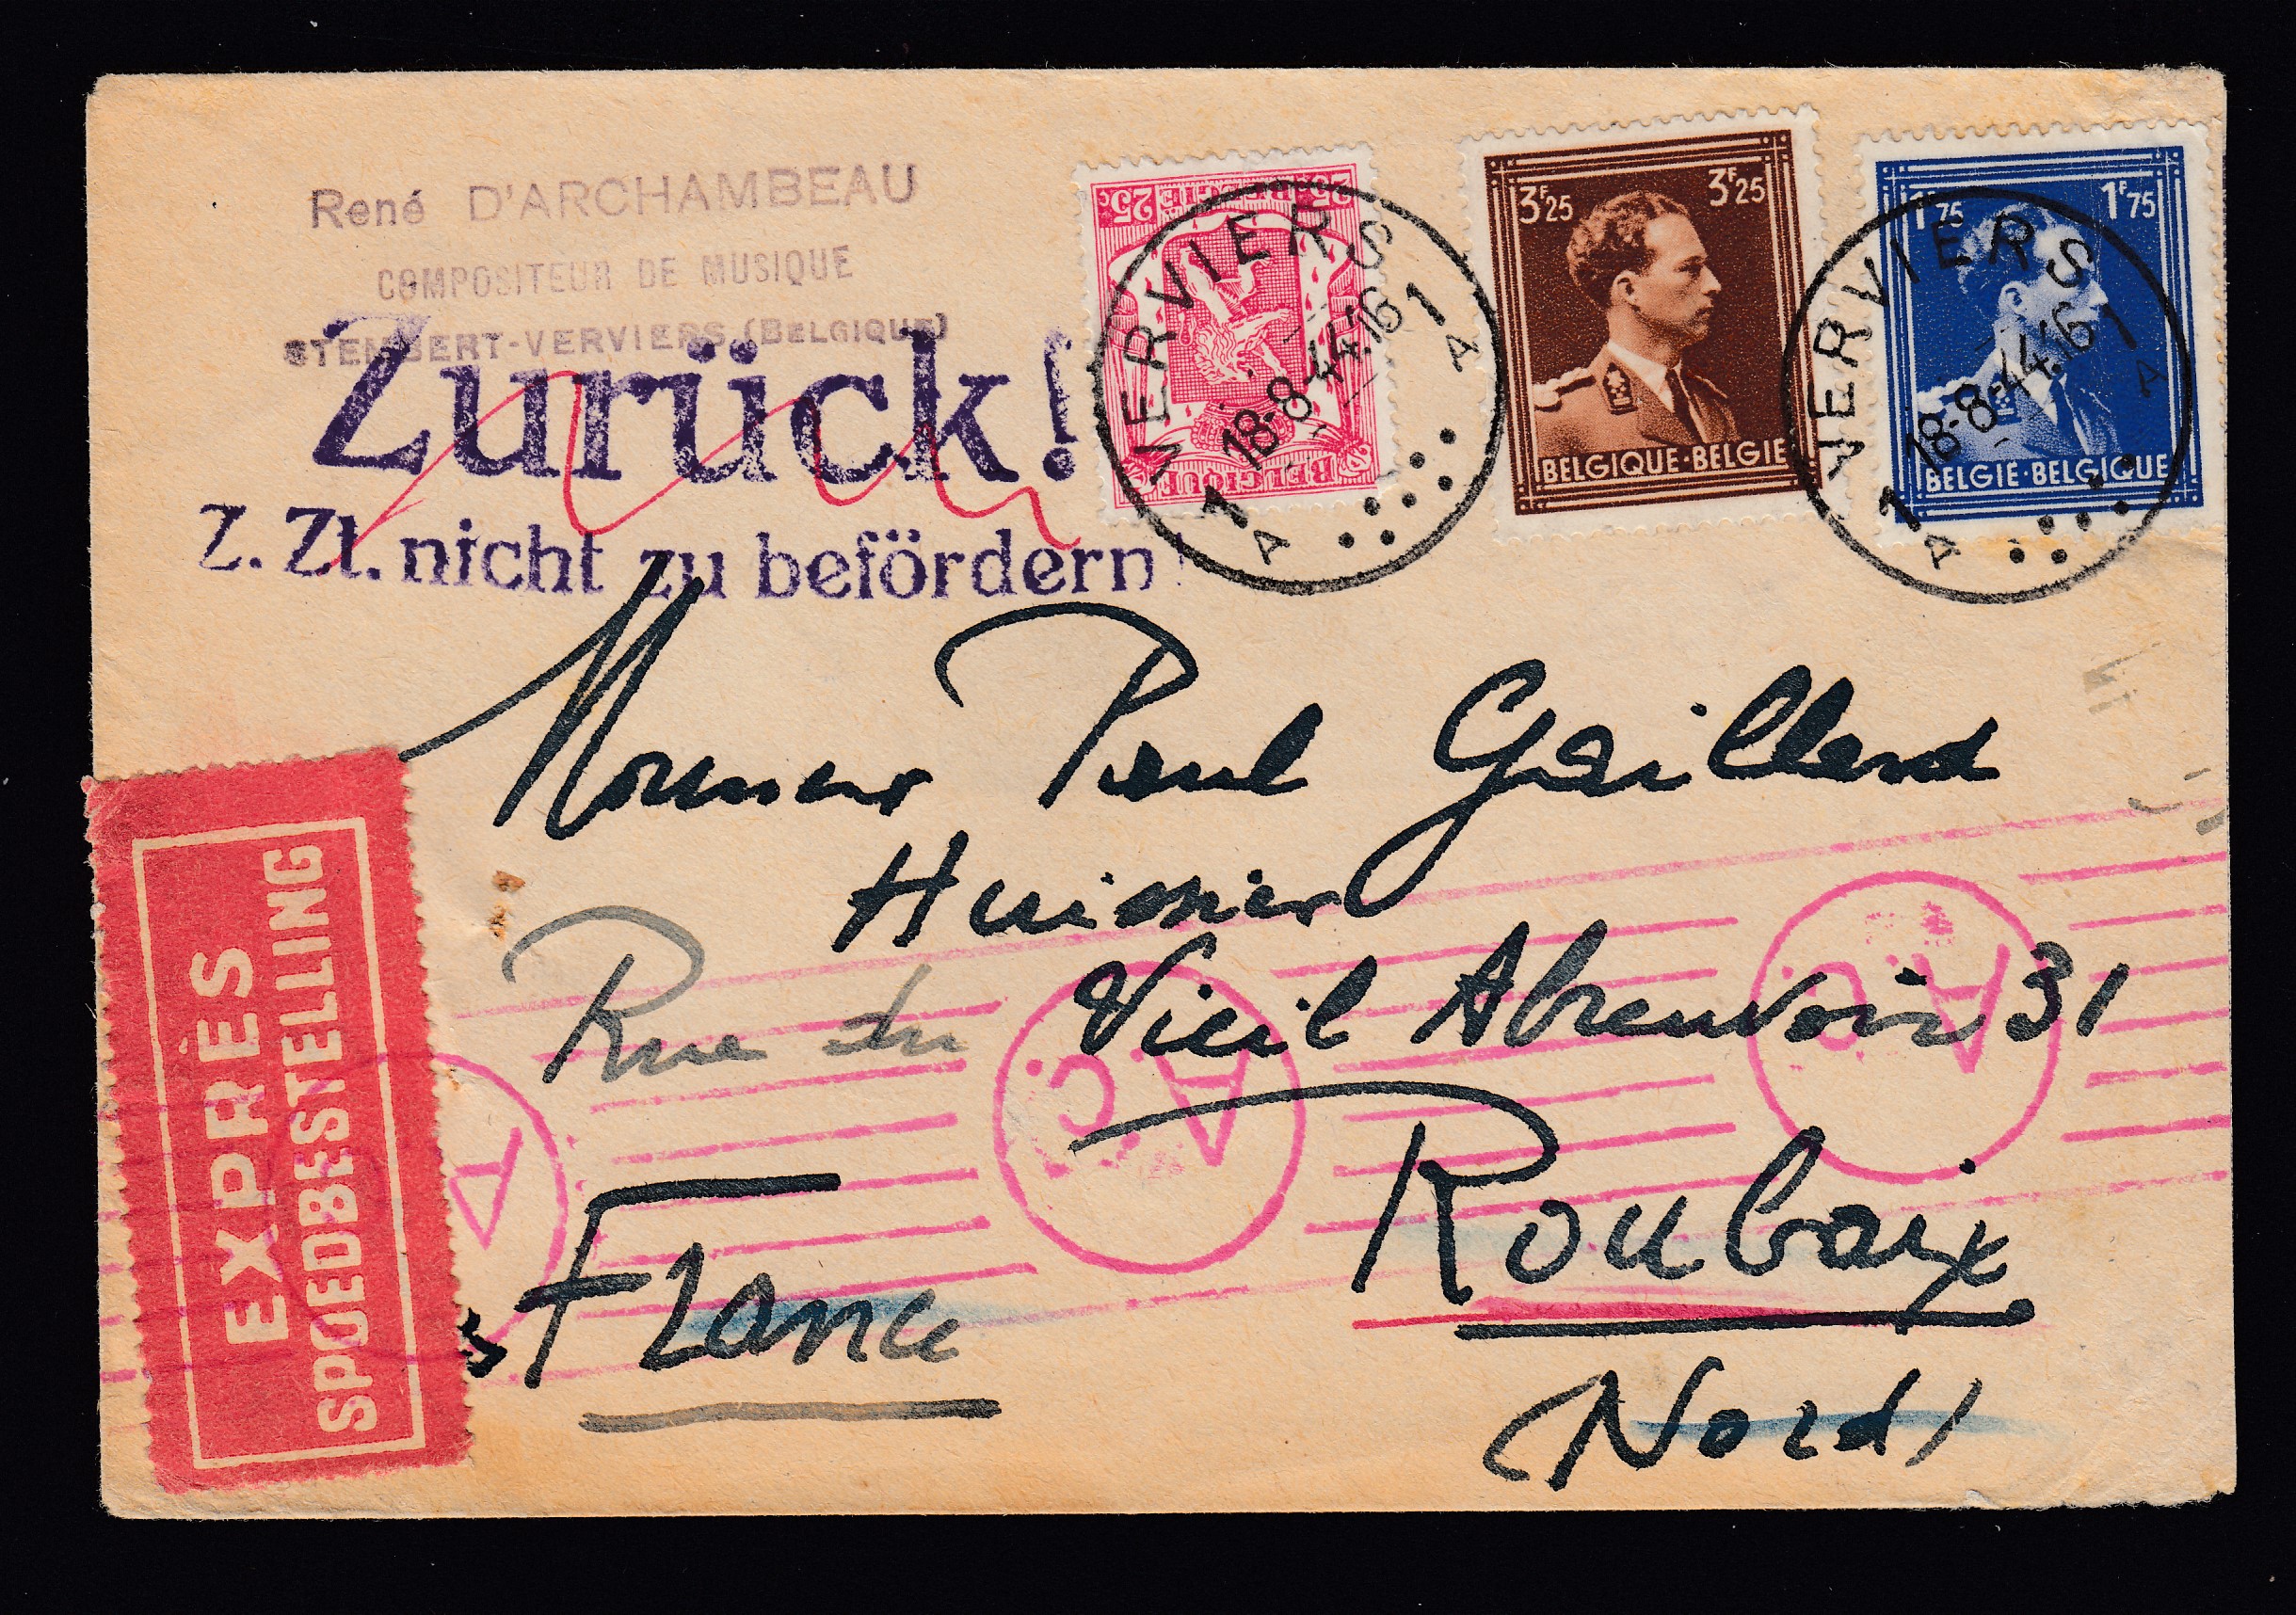 René D'ARCHAMBEAU
COMPOSITEUR DE MUSIQUE
STEMBERT-VERVIERS (BELGIQUE)
Zurück!
Z. Zt. nicht zu befördern!
25c BELGIË 25c
BELGIQUE
VERVIERS 1
18-8-44.16
1A
A
3F25 3F25
BELGIQUE·BELGIE
1F75 1F75
BELGIE·BELGIQUE
VERVIERS 1
18-8-44.16
1A
A
Monsieur Paul Gaillard
Huissier
Rue du Vieil Abreuvoir 31
Roubaix
France
(Nord)
EXPRÈS
SPOEDBESTELLING
A
A.c.
A.c.